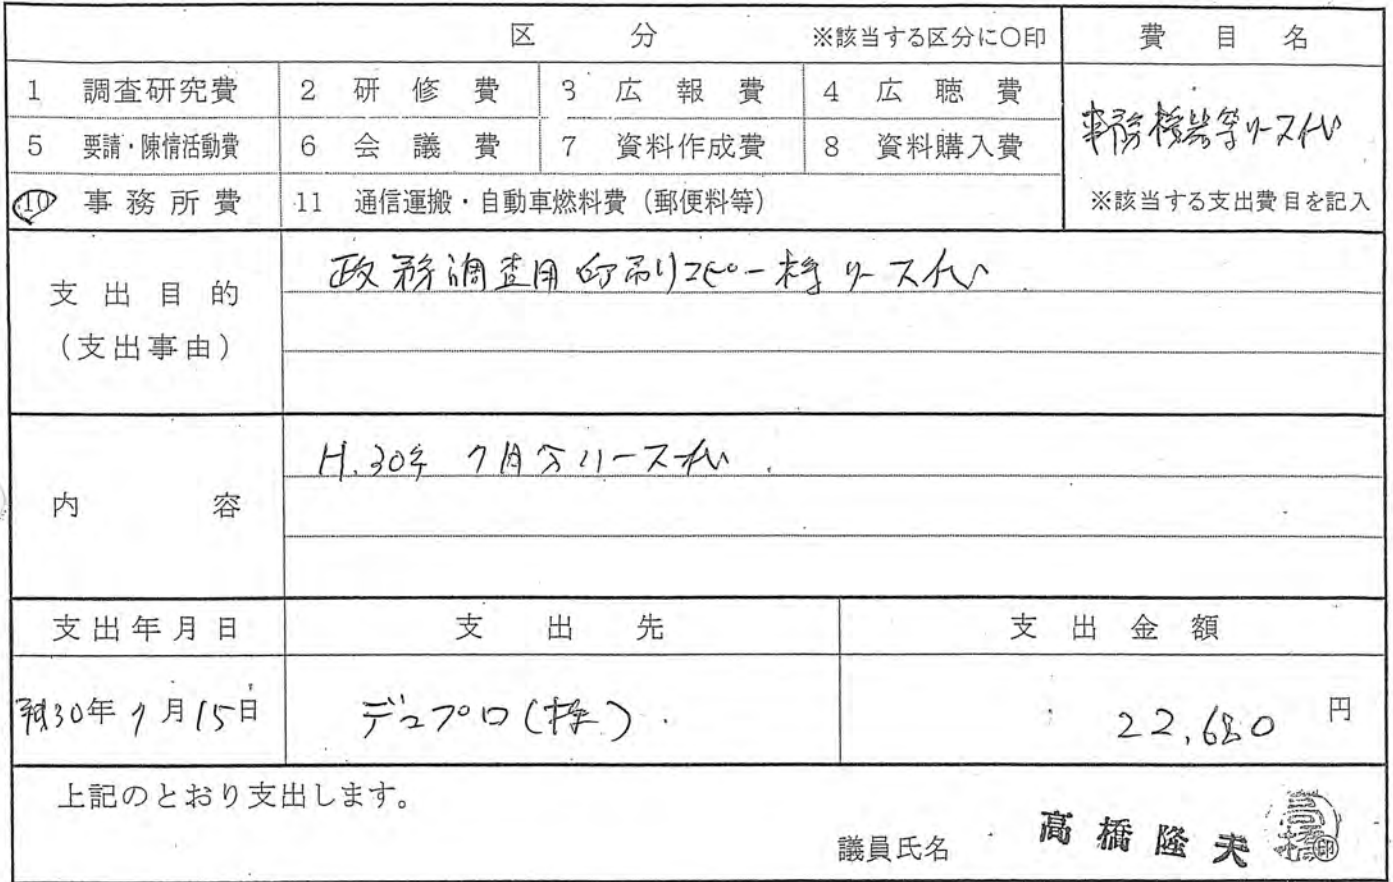 区 分 ※該当する区分に○印 費 目 名
1 調査研究費 2 研 修 費 3 広 報 費 4 広 聴 費
事務機器等リース代
5 要請・陳情活動費 6 会 議 費 7 資料作成費 8 資料購入費
10 事 務 所 費 11 通信運搬・自動車燃料費（郵便料等） ※該当する支出費目を記入
支 出 目 的
（支出事由）
政務調査用印刷リコピー機リース代
内 容
H.30年 7月分リース代
支出年月日 支 出 先 支 出 金 額
平成30年7月15日 デュプロ(株) 22,680 円
上記のとおり支出します。
議員氏名 高橋隆夫 高橋 印